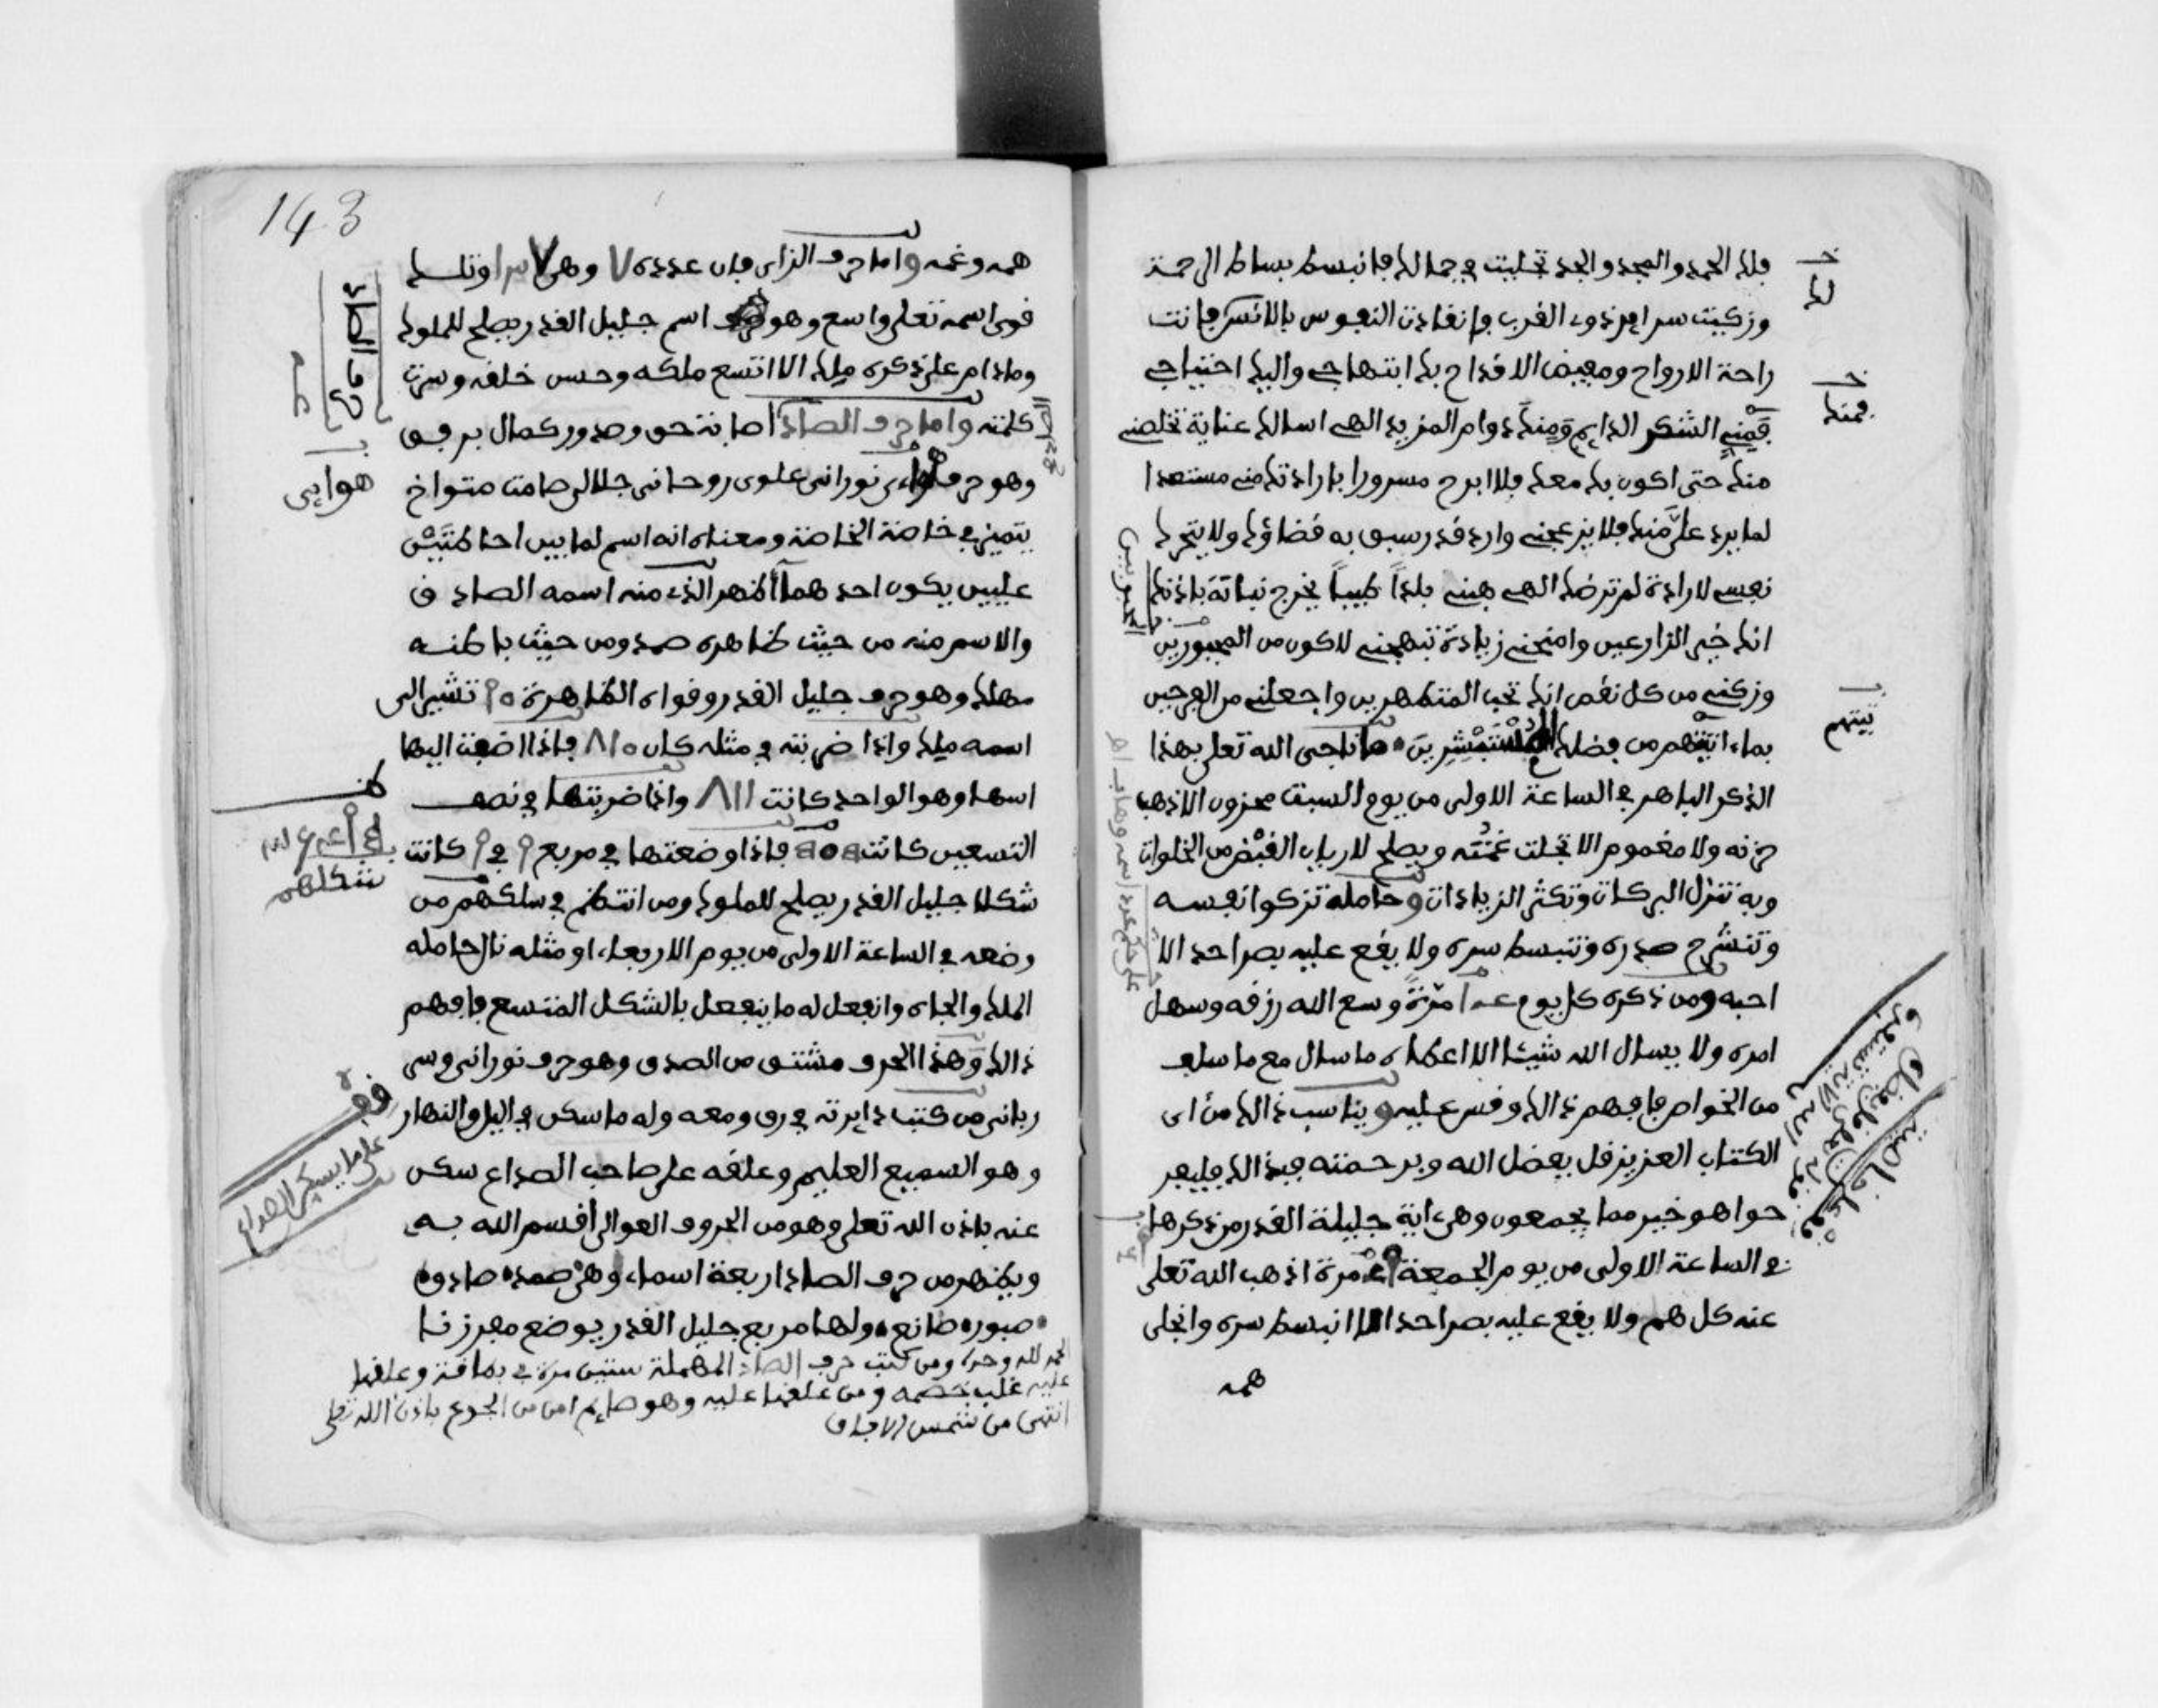 فلك الحمد والمجد والجد تجليت في جمالك فانبسط بساط الرحمة
وزكيت سراير ذوي القرب وانقادت النفوس بالانس فانت
راحة الارواح ومفيض الافراح بك ابتهاجي واليك احتياجي
فمني الشكر الدايم ومنك دوام المزيد الهي اسالك عناية تخلصني
منك حتى اكون بك معك فلا ابرح مسرورا بارادتك مني مستعدا
لما يرد علي منك فلا يزعجني وارد قدر سبق به قضاؤك ولا يتحرك
نفسي لارادة لم ترضك الهي هبني بلدا طيبا يخرج نباته باذنك
انك خير الزارعين وامنحني زيادة تبهجني لاكون من المحبورين
وزكني من كل نقص انك تحب المتطهرين واجعلني من الفرحين
بما اتيتهم من فضلك المستبشرين ما ناجى الله تعلى بهذا
الذكر الباهر في الساعة الاولى من يوم السبت محزون الا ذهب
حزنه ولا مغموم الا تجلت غمته ويصلح لارباب القبض من الخلوات
وبه تنزل البركات وتكثر الزيادات وحامله تزكوا نفسه
وتنشرح صدره وتنبسط سره ولا يقع عليه بصر احد الا
احبه ومن ذكره كل يوم مرة وسع الله رزقه وسهل
امره ولا يسال الله شيئا الا اعطاه ما سال مع ما سلف
من الخواص فافهم ذالك وقس عليه ويناسب ذالك من اي
الكتاب العزيز قل بفضل الله وبرحمته فبذالك فليفر
حوا هو خير مما يجمعون وهي اية جليلة القدر من ذكرها
في الساعة الاولى من يوم الجمعة مرة اذهب الله تعلى
عنه كل هم ولا يقع عليه بصر احد الا انبسط سره وانجلى
همه
لك
فمنك
اتيتهم
143
همه وغمه واما حرف الزاي فان عدده ٧ وهي ٧ اوتلك
قوى اسمه تعلى واسع وهو اسم جليل القدر يصلح للملوك
وما دام على ذكره ملك الا اتسع ملكه وحسن خلقه وسرت
كلمته واما حرف الصاد اصابة حق وصدور كمال برفق
وهو حرف نوراني علوي روحاني جلالي صامت متواخ
يتميز في خاصة الخاصة ومعناه انه اسم لما بين احاطتين
عليين يكون احدهما اظهر الذي منه اسمه الصادق
والاسم منه من حيث ظاهره صمد ومن حيث باطنه
مهلك وهو حرف جليل القدر وقواه الظاهرة ٩٠ تشير الى
اسمه ملك واذا ضربته في مثله كان ٨١٠ فاذا اضفت اليها
اسها وهو الواحد كانت ٨١١ واذا ضربتها في نصف
التسعين كانت فاذا وضعتها في مربع ٩ في ٩ كانت
شكلا جليل القدر يصلح للملوك ومن انتظم في سلكهم من
وضعه في الساعة الاولى من يوم الاربعاء او مثله نال حامله
الملك والجاه وانفعل له ما ينفعل بالشكل المتسع فافهم
ذالك وهذا الحرف مشتق من الصدق وهو حرف نوراني وسر
رباني من كتب دايرته في رق ومعه وله ما سكن في اليل والنهار
وهو السميع العليم وعلقه على صاحب الصداع سكن
عنه باذن الله تعلى وهو من الحروف العوالي اقسم الله به
ويظهر من حرف الصاد اربعة اسماء وهي صمد صادق
صبور صانع ولها مربع جليل القدر يوضع مع رزقنا
الحمد لله وحده ومن كتب حرف الصاد المهملة ستين مرة في بطاقة وعلقها
عليه غلب خصمه ومن علقها عليه وهو صايم امن من الجوع باذن الله تعلى
انتهى من شمس الافاق
حرف الصاد
هوايي
شكلهم
قف
على ما يسكن الصداع